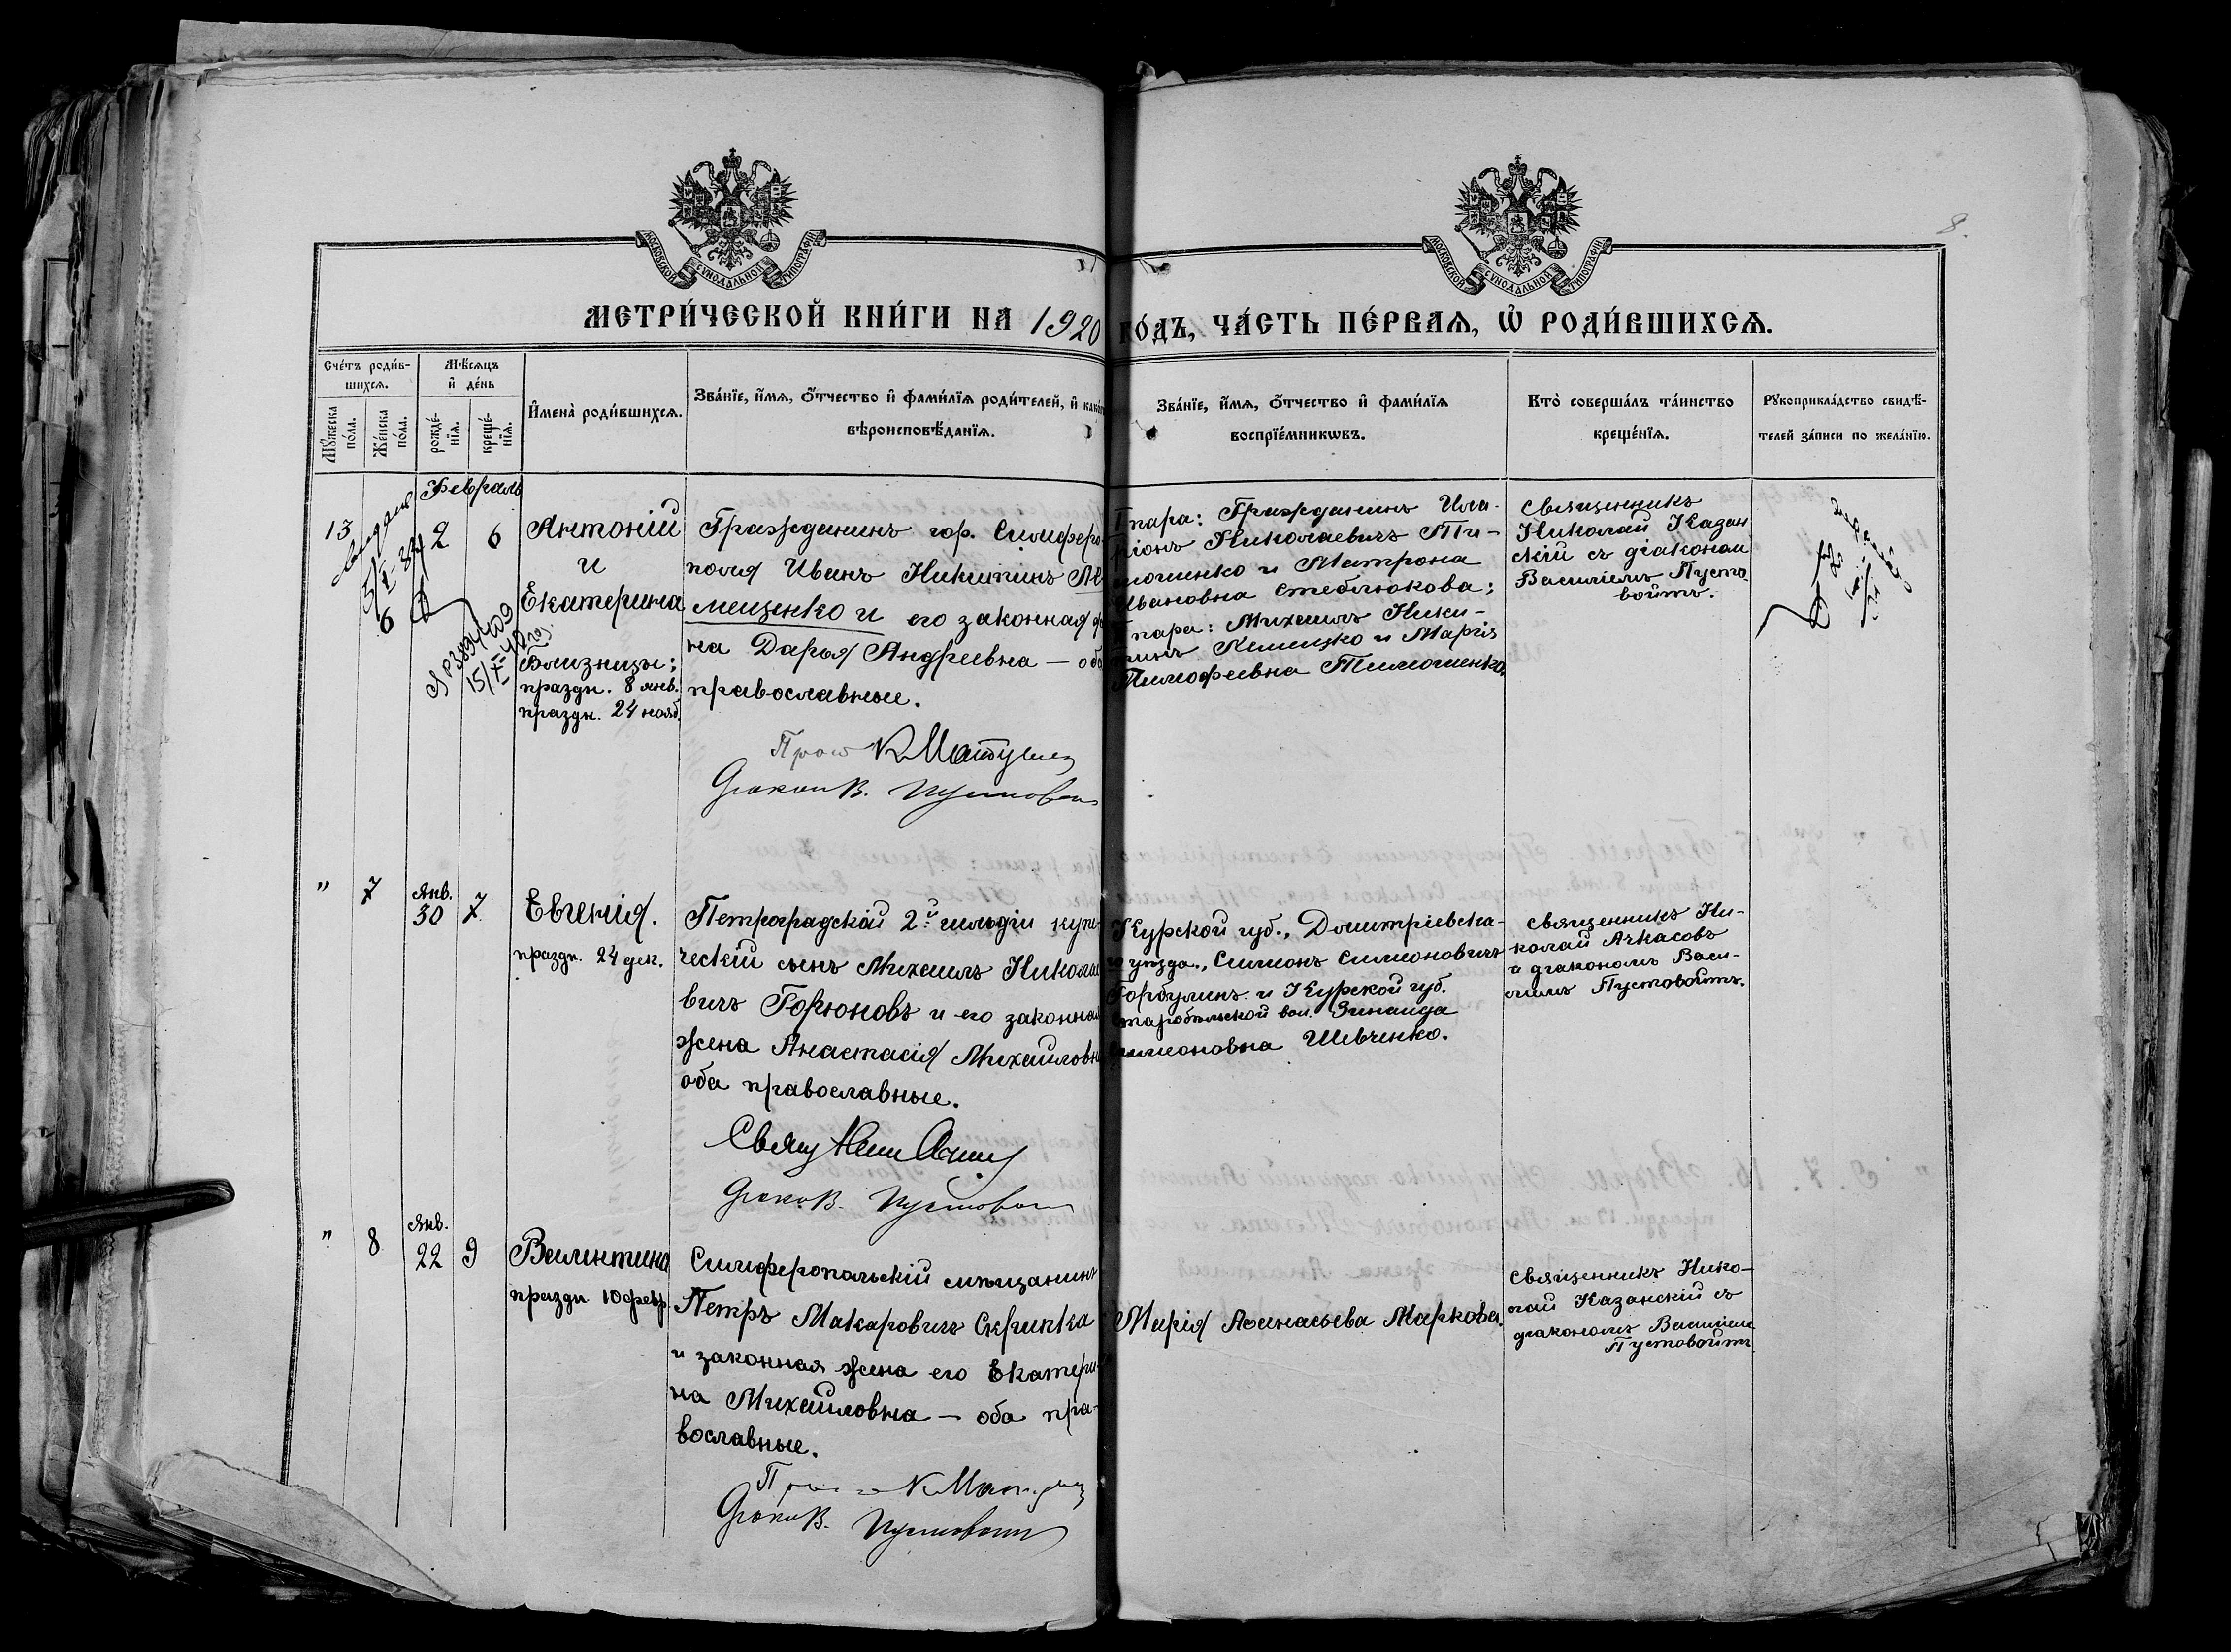 МОСКОВСКОЙ СѴНОДАЛЬНОЙ ТИПОГРАФІИ
МОСКОВСКОЙ СѴНОДАЛЬНОЙ ТИПОГРАФІИ
8.
МЕТРИ́ЧЕСКОЙ КНИ́ГИ НА 1920
ГО́ДЪ, ЧА́СТЬ ПЕ́РВАѦ, Ѡ҆ РОДИ́ВШИХСѦ.
Сче́тъ роди́в-
шихсѧ.
Мꙋ́жеска
по́ла.
Же́нска
по́ла.
Мѣ́сѧцъ
и҆ де́нь
рожде́-
нїѧ.
креще́-
нїѧ.
И҆мена̀ роди́вшихсѧ.
Зва́нїе, и҆́мѧ, ѻ҆́тчество и҆ фами́лїѧ роди́телей, и҆ како́гѡ
вѣроисповѣ́данїѧ.
Зва́нїе, и҆́мѧ, ѻ҆́тчество и҆ фами́лїѧ
воспрїе́мникѡвъ.
Кто̀ соверша́лъ та́инство
креще́нїѧ.
Рꙋкоприкла́дство свидѣ́-
телей за́писи по жела́нїю.
Февраль
13
6
2
6
Антоній
и
Екатерина
близнецы:
праздн. 8 янв.
праздн. 24 нояб.
15/X-40 год.
Гражданинъ гор. Симферо-
поля Иванъ Никитинъ
мещенко и его законная
на Дарья Андреевна — оба
православные.
Діакон В. Пустовойт
I пара: Гражданинъ Ила-
ріонъ Николаевичъ Ти-
мошенко и Матрона
Ивановна Стеблюкова;
II пара: Михаилъ Ники-
тинъ и Марія
Тимофеевна Тимошенко.
Священникъ
Николай Казан
скій съ діаконом
Василіемъ Пусто
войтъ.
"
7
Янв.
30
7
Евгенія.
праздн. 24 дек.
Петроградскій 2й гильдіи купе-
ческій сынъ Михаилъ Николае
вичъ Горюновъ и его законная
жена Анастасія Михайловна
оба православные.
Діакон В. Пустовойт
Курской губ., Дмитріевска-
го уѣзда, Симонъ Симоновичъ
Горбулинъ и Курской губ.
Старобѣльской вол. Зинаида
Симоновна Шевченко.
Священникъ Ни-
колай Ачкасовъ
и діакономъ Васи-
ліемъ Пустовойтъ.
"
8
Янв.
22
9
Валентина
праздн 10 февр.
Симферопольскій мѣщанинъ
Петръ Макаровичъ Скрипка
и законная жена его Екатери-
на Михайловна — оба пра-
вославные.
Діакон В. Пустовойт
Марія Аѳанасьева Маркова.
Священникъ Нико-
лай Казанскій съ
діакономъ Василіем
Пустовойтъ